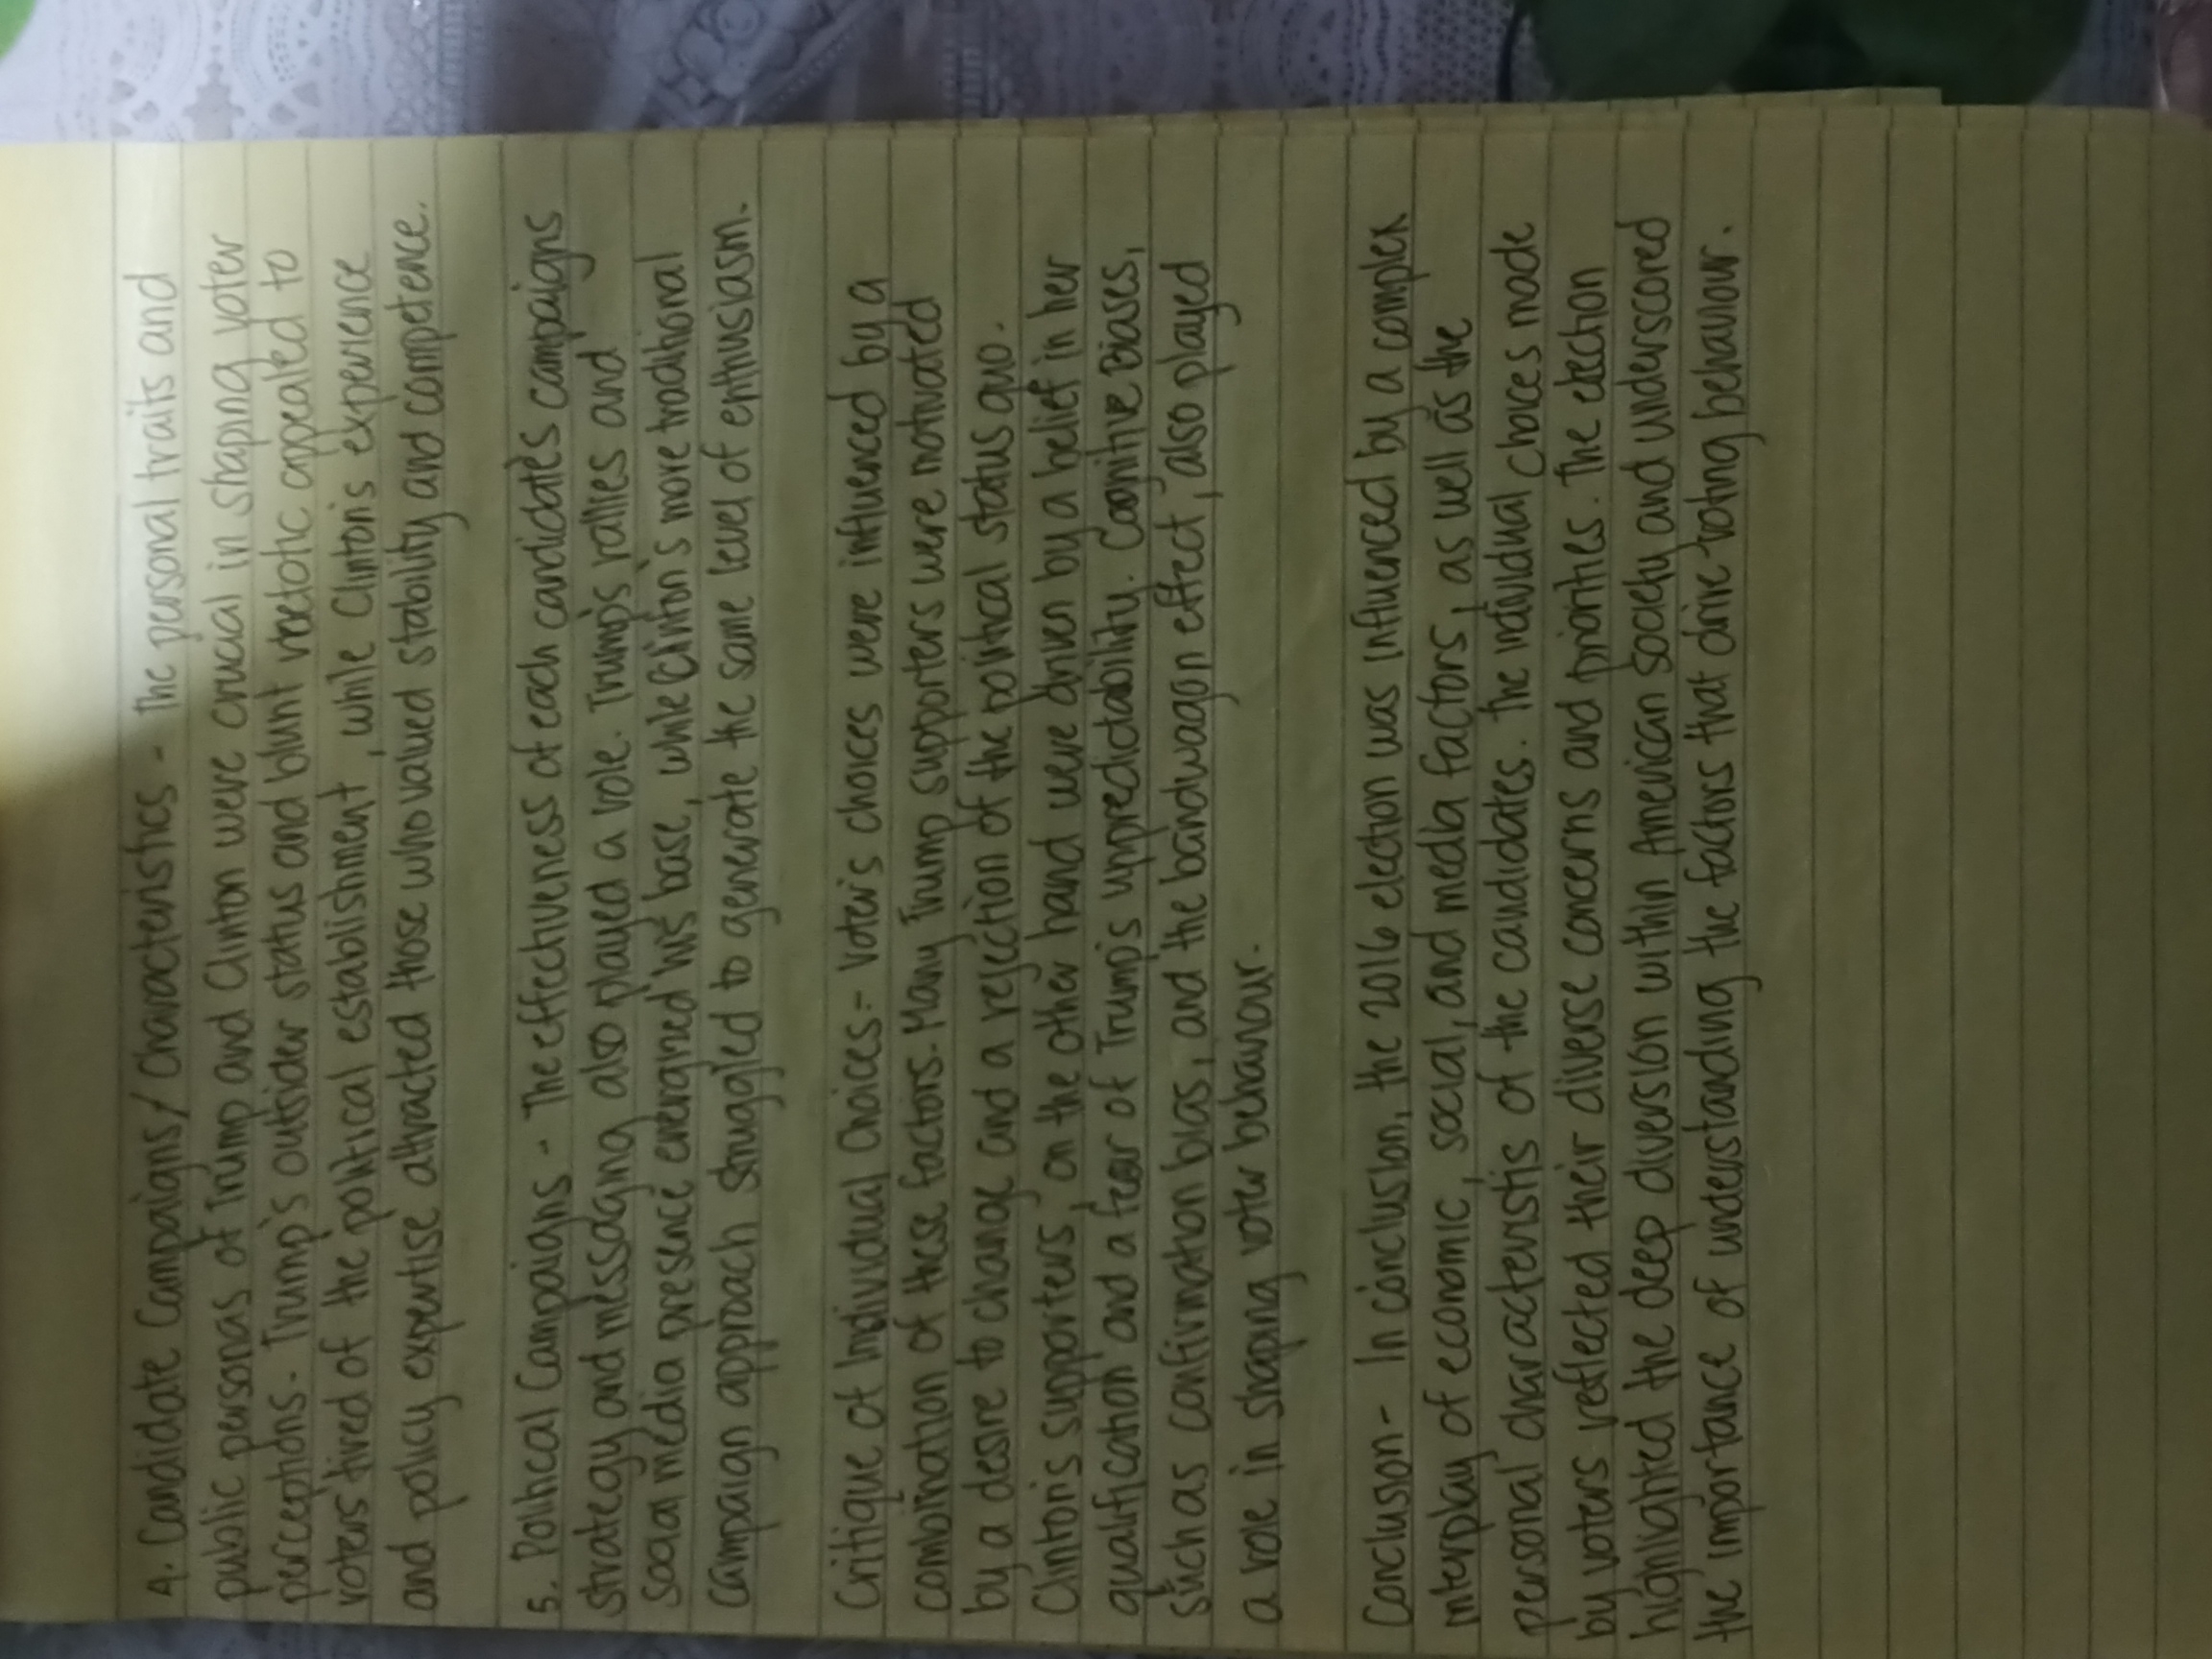 4. Candidate Campaigns/ Characteristics - The personal traits and
public personas of Trump and Clinton were crucial in shaping voter
perceptions. Trump's outsider status and blunt rhetotic appealed to
voters tired of the political establishment, while Clinton's experience
and policy expertise attracted those who valued stability and competence.
5. Political Campaigns - The effectiveness of each candidate's campaigns
strategy and messaging also played a role. Trump's rallies and
social media presence energized his base, while Clinton's more traditional
campaign approach struggled to generate the same level of enthusiasm.
Critique of Individual Choices - Voter's choices were influenced by a
combination of these factors. Many Trump supporters were motivated
by a desire to change and a rejection of the political status quo.
Clinton's supporters, on the other hand were driven by a belief in her
qualification and a fear of Trump's unpredictability. Cognitive Biases,
such as confirmation bias, and the bandwagon effect, also played
a role in shaping voter behaviour.
Conclusion - In conclusion, the 2016 election was influenced by a complex
interplay of economic, social, and media factors, as well as the
personal characteristis of the candidates. The individual choices made
by voters reflected their diverse concerns and priorities. The election
highlighted the deep diversion within American society and underscored
the importance of understanding the factors that drive voting behaviour.